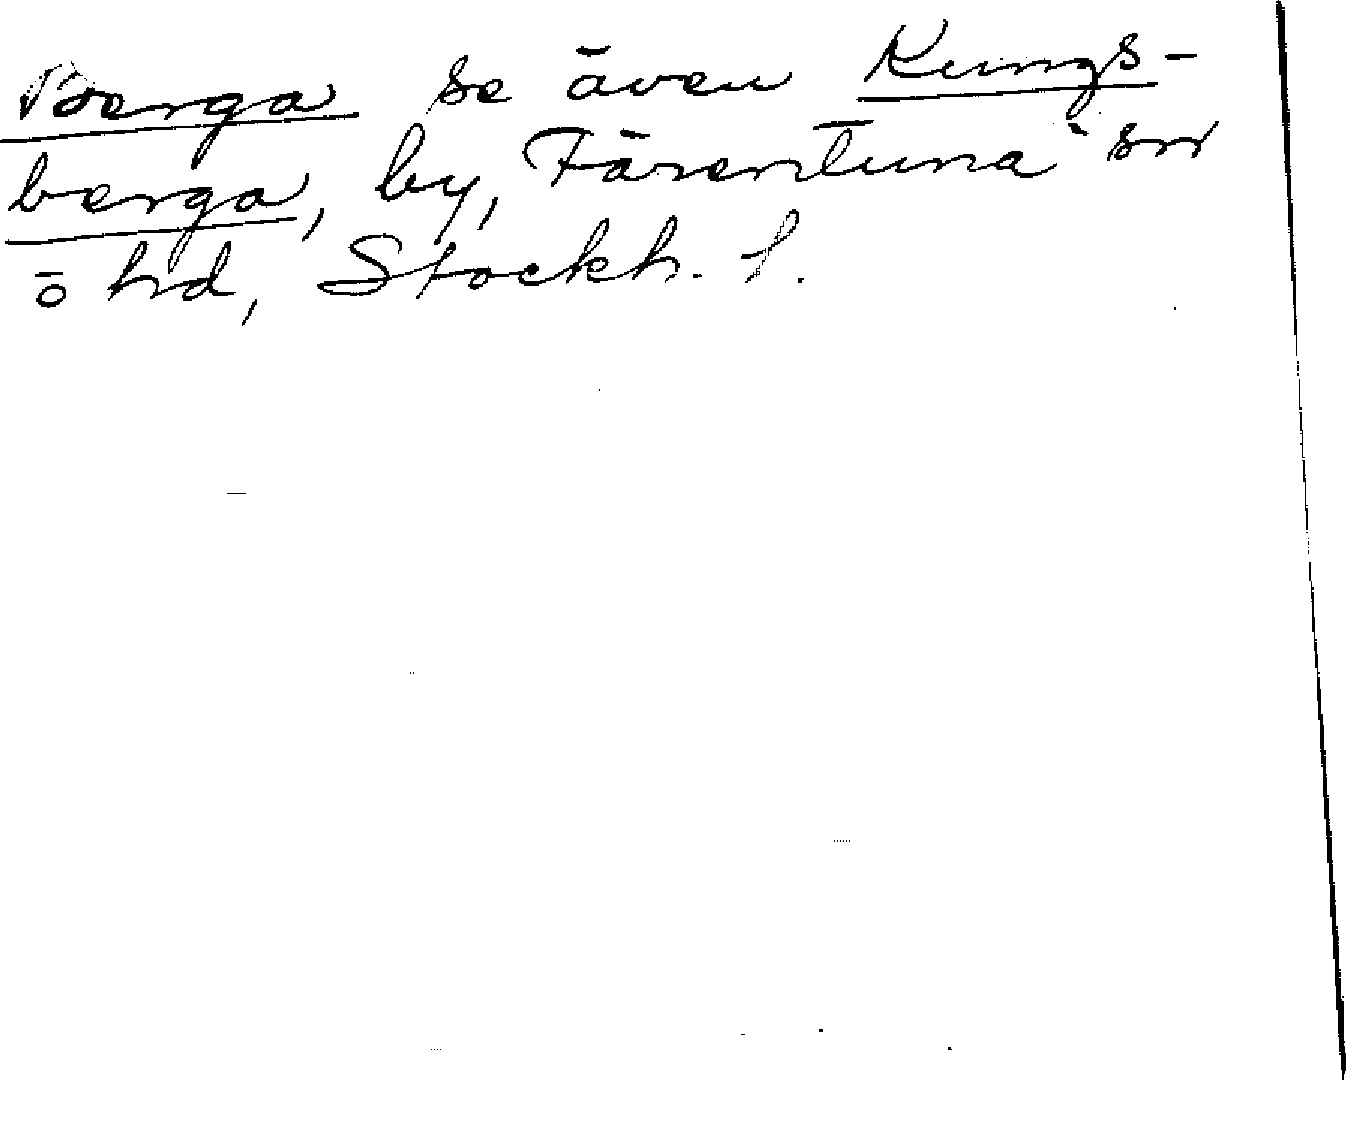 Berga se även Kungs-
berga, by, Färentuna sn
o hd, Stockh. l.